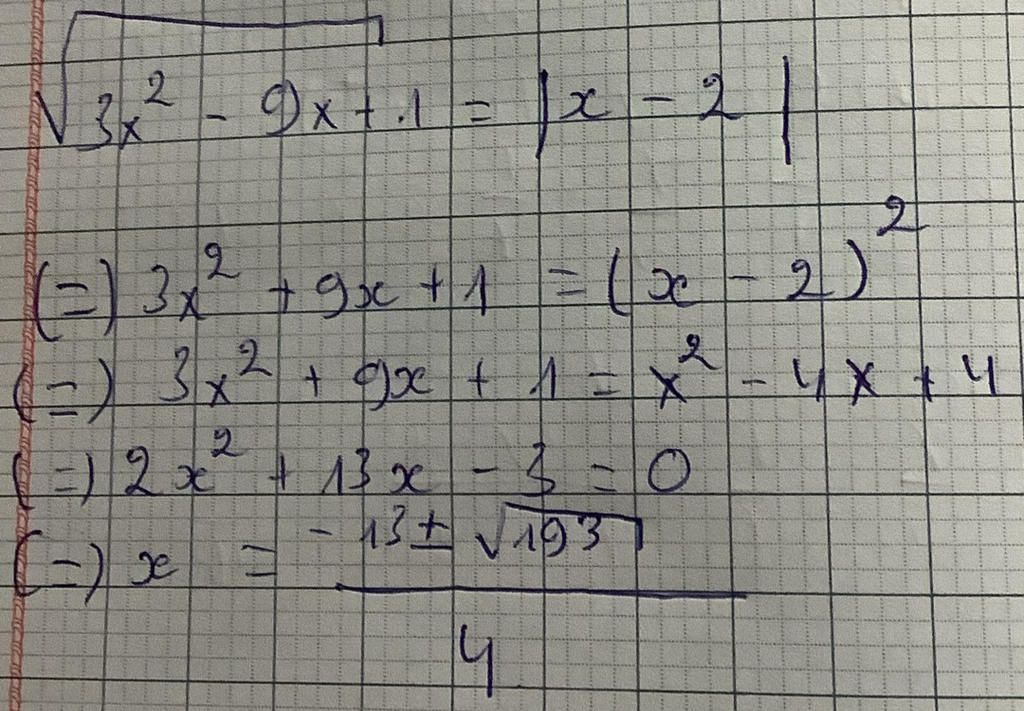 √(3x² - 9x + 1) = |x - 2|
(=) 3x² + 9x + 1 = (x - 2)²
(=) 3x² + 9x + 1 = x² - 4x + 4
(=) 2x² + 13x - 3 = 0
(=) x = (-13 ± √193) / 4